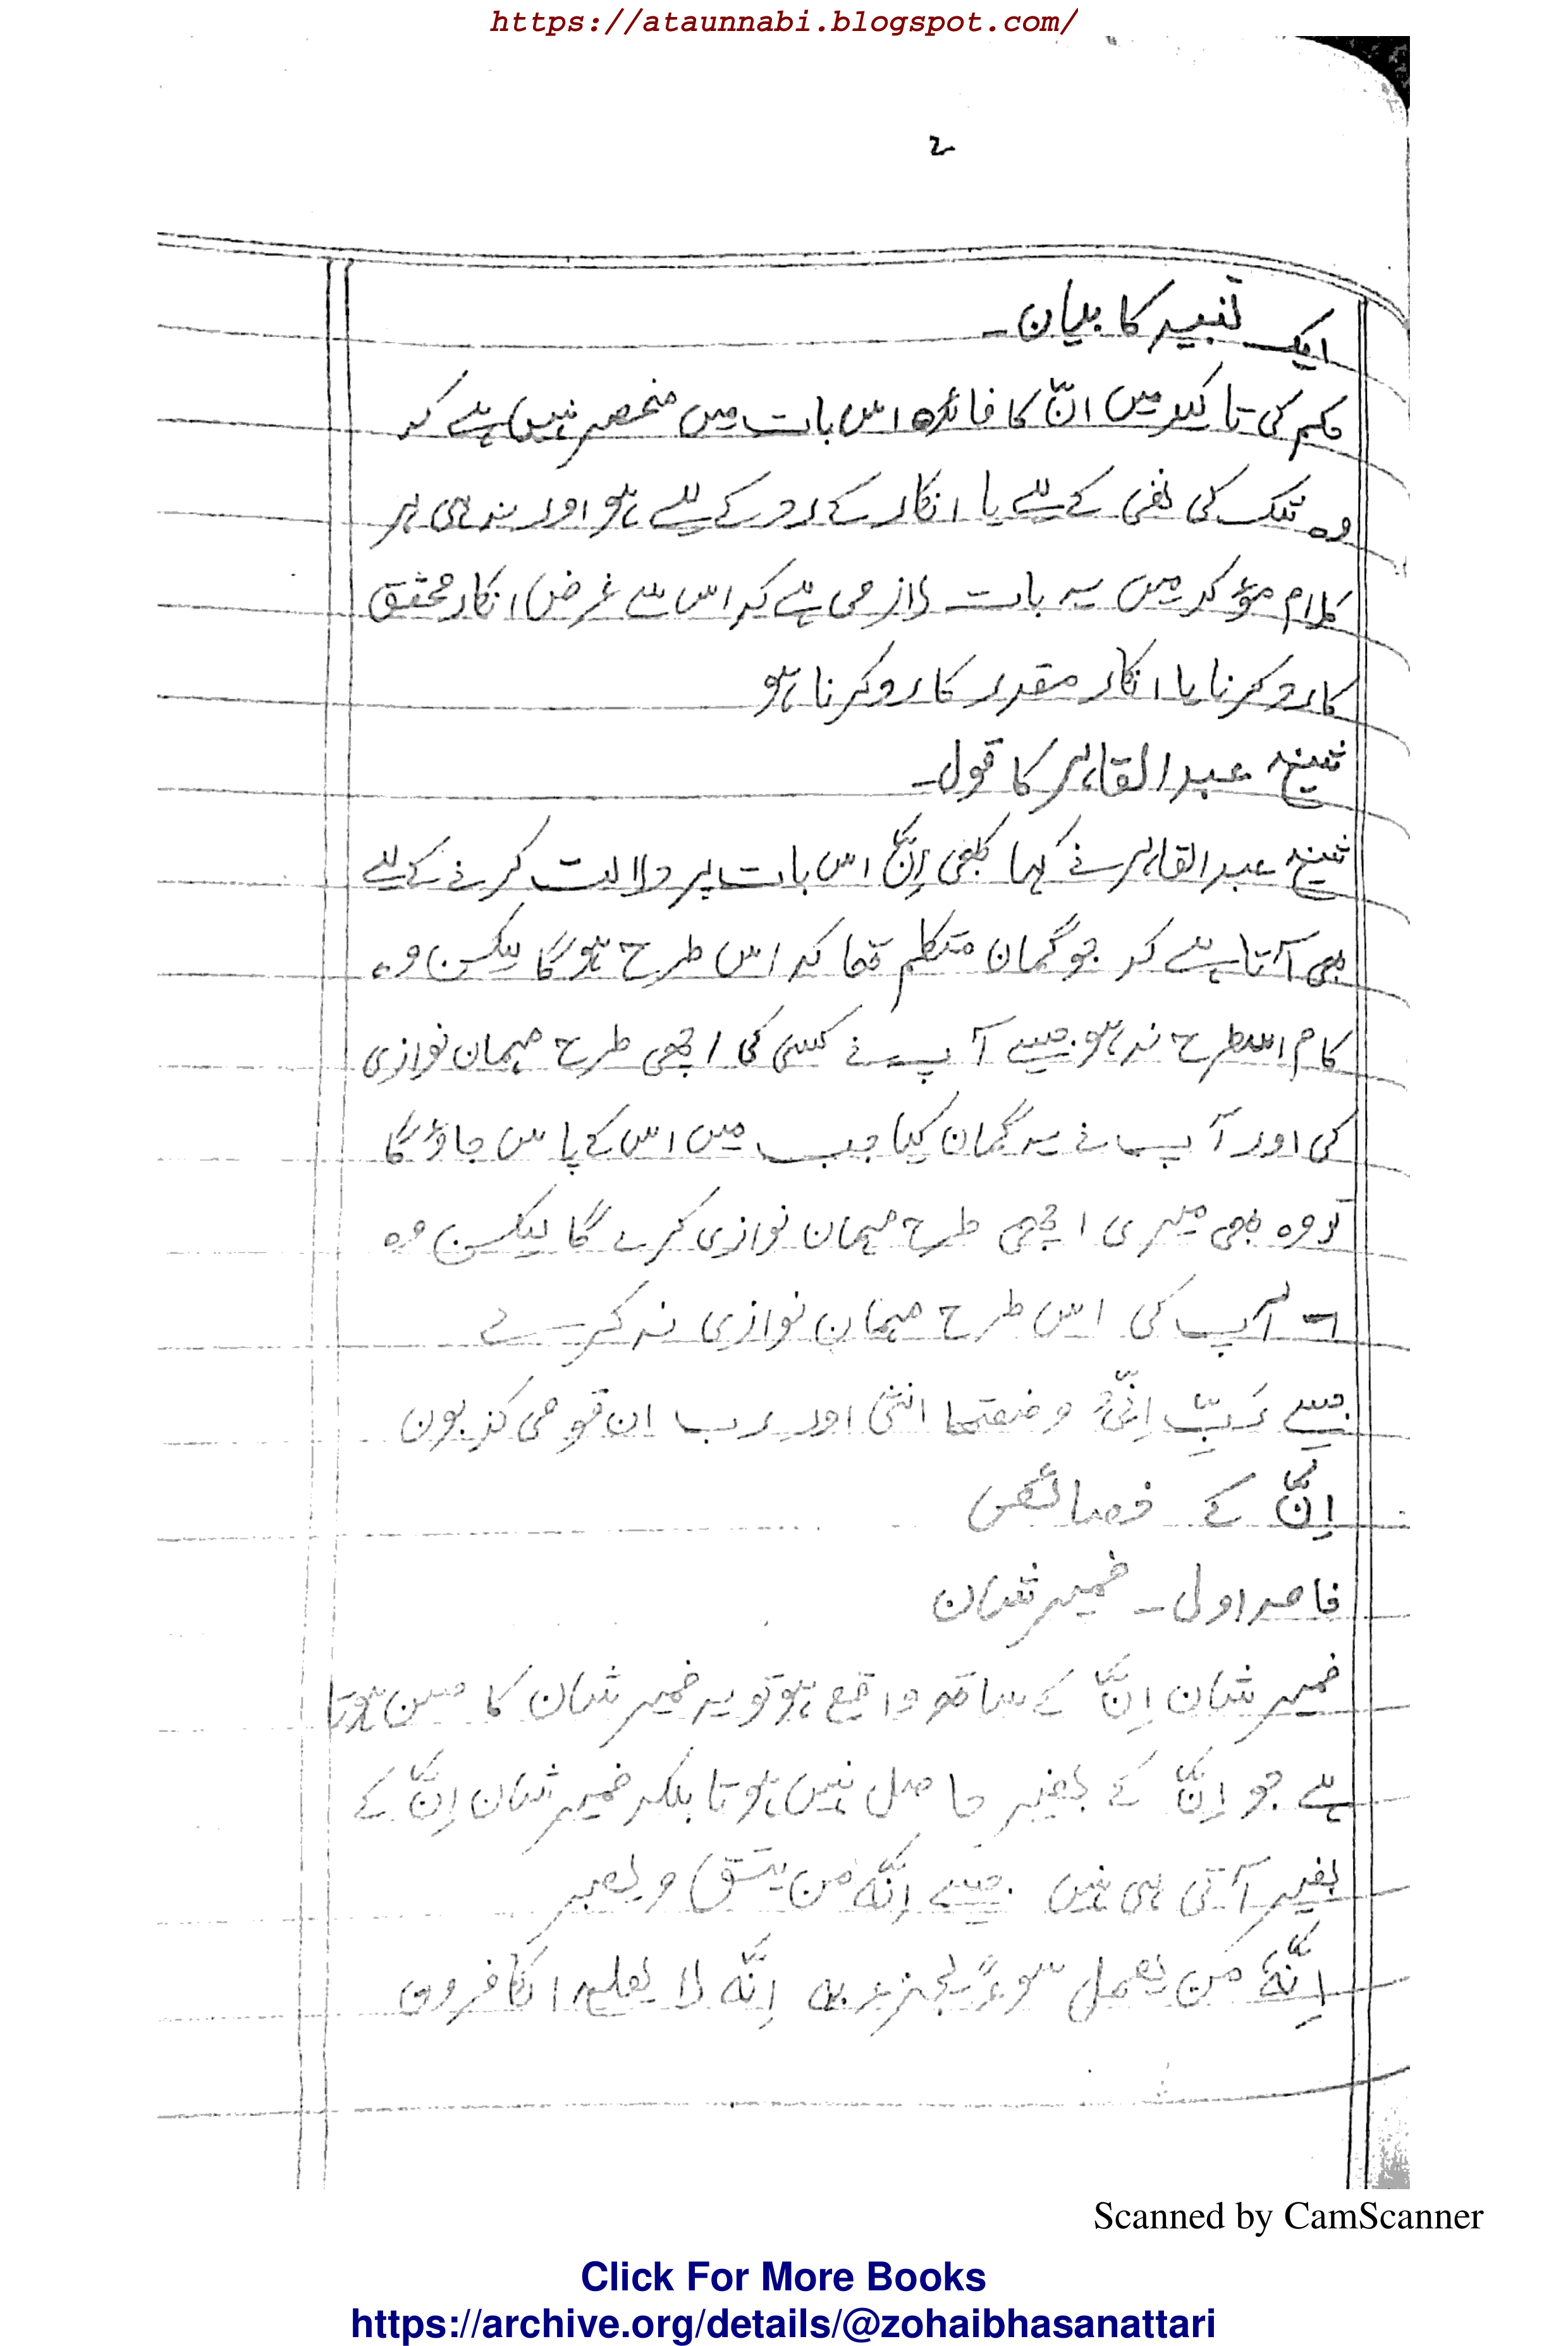 https://ataunnabi.blogspot.com/
۲
ایک تنبیہ کا بیان۔
حکم کی تاکید میں انّ کا فائدہ اس بات میں منحصر نہیں ہے کہ
وہ شک کی نفی کے لیے یا انکار کے رد کے لیے ہو اور نہ ہی ہر
کلام مؤکد میں یہ بات لازمی ہے کہ اس سے غرض انکار محقق
کا رد کرنا یا انکار مقدر کا رد کرنا ہو
شیخ عبد القاہر کا قول۔
شیخ عبد القاہر نے کہا کبھی اِنَّ اس بات پر دلالت کرنے کے لیے
بھی آتا ہے کہ جو گمان متکلم تھا کہ اس طرح ہوگا لیکن وہ
کام اسطرح نہ ہو جیسے آپ نے کسی کی اچھی طرح مہمان نوازی
کی اور آپ نے یہ گمان کیا جب میں اس کے پاس جاؤ گا
تو وہ بھی میری اچھی طرح مہمان نوازی کرے گا لیکن وہ
آپ کی اس طرح مہمان نوازی نہ کرے
جیسے رَبِّ اِنِّیْ وضعتھا انثی اور رب ان قومی کذبون
اِنَّ کے خصائص
خاصہ اولی۔ ضمیر شان
ضمیر شان اِنَّ کے ساتھ واقع ہو تو یہ ضمیر شان کا حسن ہوتا
ہے جو اِنَّ کے بغیر حاصل نہیں ہوتا بلکہ ضمیر شان اِنَّ کے
بغیر آتی ہی نہیں جیسے اِنَّہٗ من یتق و یصبر
اِنَّہٗ من یعمل سوءً یجز بہ اِنَّہٗ لا یفلح الکافرون
Scanned by CamScanner
Click For More Books
https://archive.org/details/@zohaibhasanattari